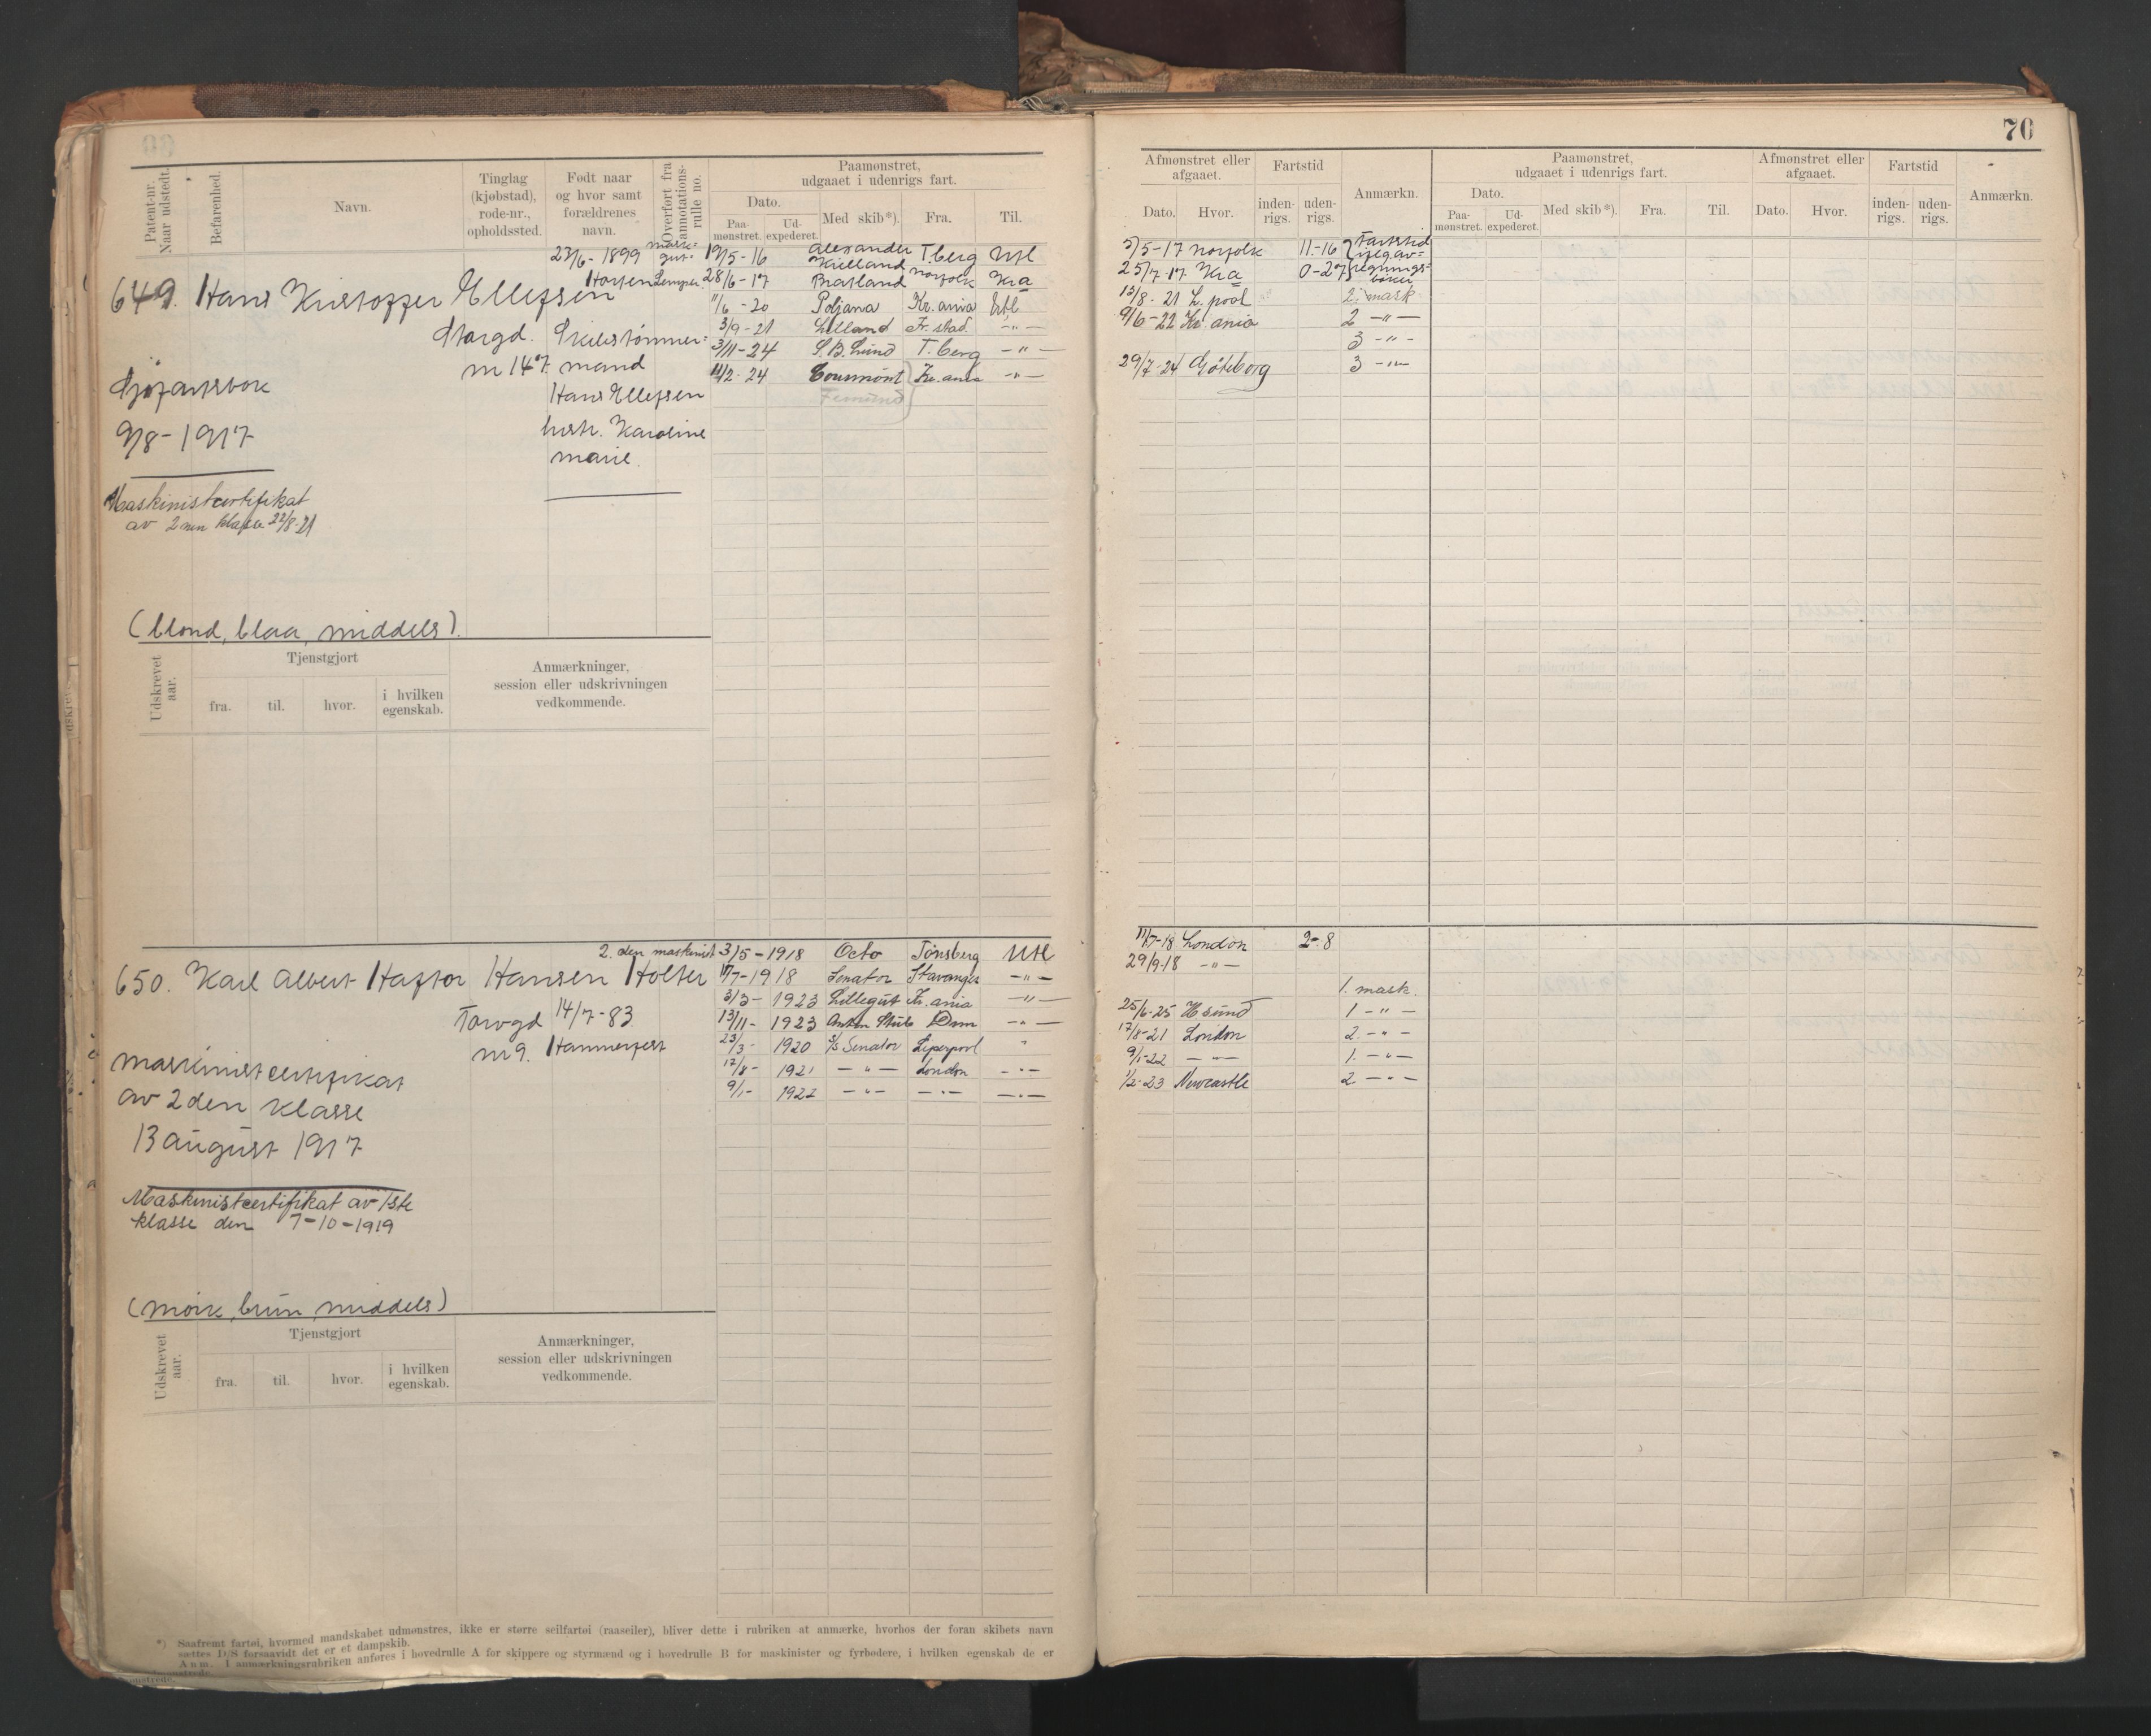 70
Patent-nr. Naar udstedt.
Befarenhed.
Navn.
Tinglag (kjøbstad), rode-nr., opholdssted.
Født naar og hvor samt forældrenes navn.
Overført fra annotationsrulle no.
Paamønstret, udgaaet i udenrigs fart.
Dato.
Paamønstret.
Udexpederet.
Med skib*).
Fra.
Til.
Afmønstret eller afgaaet.
Dato.
Hvor.
Fartstid
indenrigs.
udenrigs.
Anmærkn.
Paamønstret, udgaaet i udenrigs fart.
Dato.
Paamønstret.
Udexpederet.
Med skib*).
Fra.
Til.
Afmønstret eller afgaaet.
Dato.
Hvor.
Fartstid
indenrigs.
udenrigs.
Anmærkn.
649. Hans Kristoffer Ellefsen
23/6-1899
Horten
Storgd. Skibstømmer=
nr 147. mand
Hans Ellefsen
hustr. Karoline
marie.
Sjøfartsbok
9/8-1917
Maskinistcertifikat
av 2nen klasse 22/8-21
(blond, blaa, middels).
19/5-16 Alexander Kielland T.berg Utl
28/6-17 Bratland Norfolk Kra
11/6-20 Poljana Kr.ania Utl
3/9-21 Lilland Fr.stad. -"-
3/11-24 S.B.Lund T.berg -"-
11/2-24 Kr.ania -"-
5/5-17 Norfolk 11-16 Fartstid
25/7-17 Kra 0-27
13/8-21 L.pool 2. mask.
9/6-22 Kr.ania 2 -"-
3 -"-
29/7-24 Göteborg 3 -"-
Udskrevet aar.
Tjenstgjort
fra.
til.
hvor.
i hvilken egenskab.
Anmærkninger, session eller udskrivningen vedkommende.
650. Karl Albert Haftor Hansen Holter
2. den maskinist
Torvgd 14/7-83
nr 9. Hammerfest
maskinistcertifikat
av 2den klasse
13 august 1917
Maskinistcertifikat av 1ste
klasse den 7-10-1919
(mørk, brun, middels)
3/5-1918 Octo Tønsberg Utl
17/7-1918 Senator Stavanger -"-
3/3-1923 Lillegut Kr.ania -"-
13/11-1923 Anton Stub -"-
23/3-1920 S/s Senator Liperpool "
17/8-1921 -"- London -"-
9/1-1922 -"- -"- -"-
11/7-18 London 2-8
29/9-18 -"-
1. mask.
25/6-25 H.sund 1 -"-
17/8-21 London 2. -"-
9/1-22 -"- 1. -"-
1/2-23 Newcastle 2 -"-
Udskrevet aar.
Tjenstgjort
fra.
til.
hvor.
i hvilken egenskab.
Anmærkninger, session eller udskrivningen vedkommende.
*) Saafremt fartøi, hvormed mandskabet udmønstres, ikke er større seilfartøi (raaseiler), bliver dette i rubriken at anmærke, hvorhos der foran skibets navn
sættes D/S forsaavidt det er et dampskib.
Anm. I anmærkningsrubriken anføres i hovedrulle A for skippere og styrmænd og i hovedrulle B for maskinister og fyrbødere, i hvilken egenskab de er